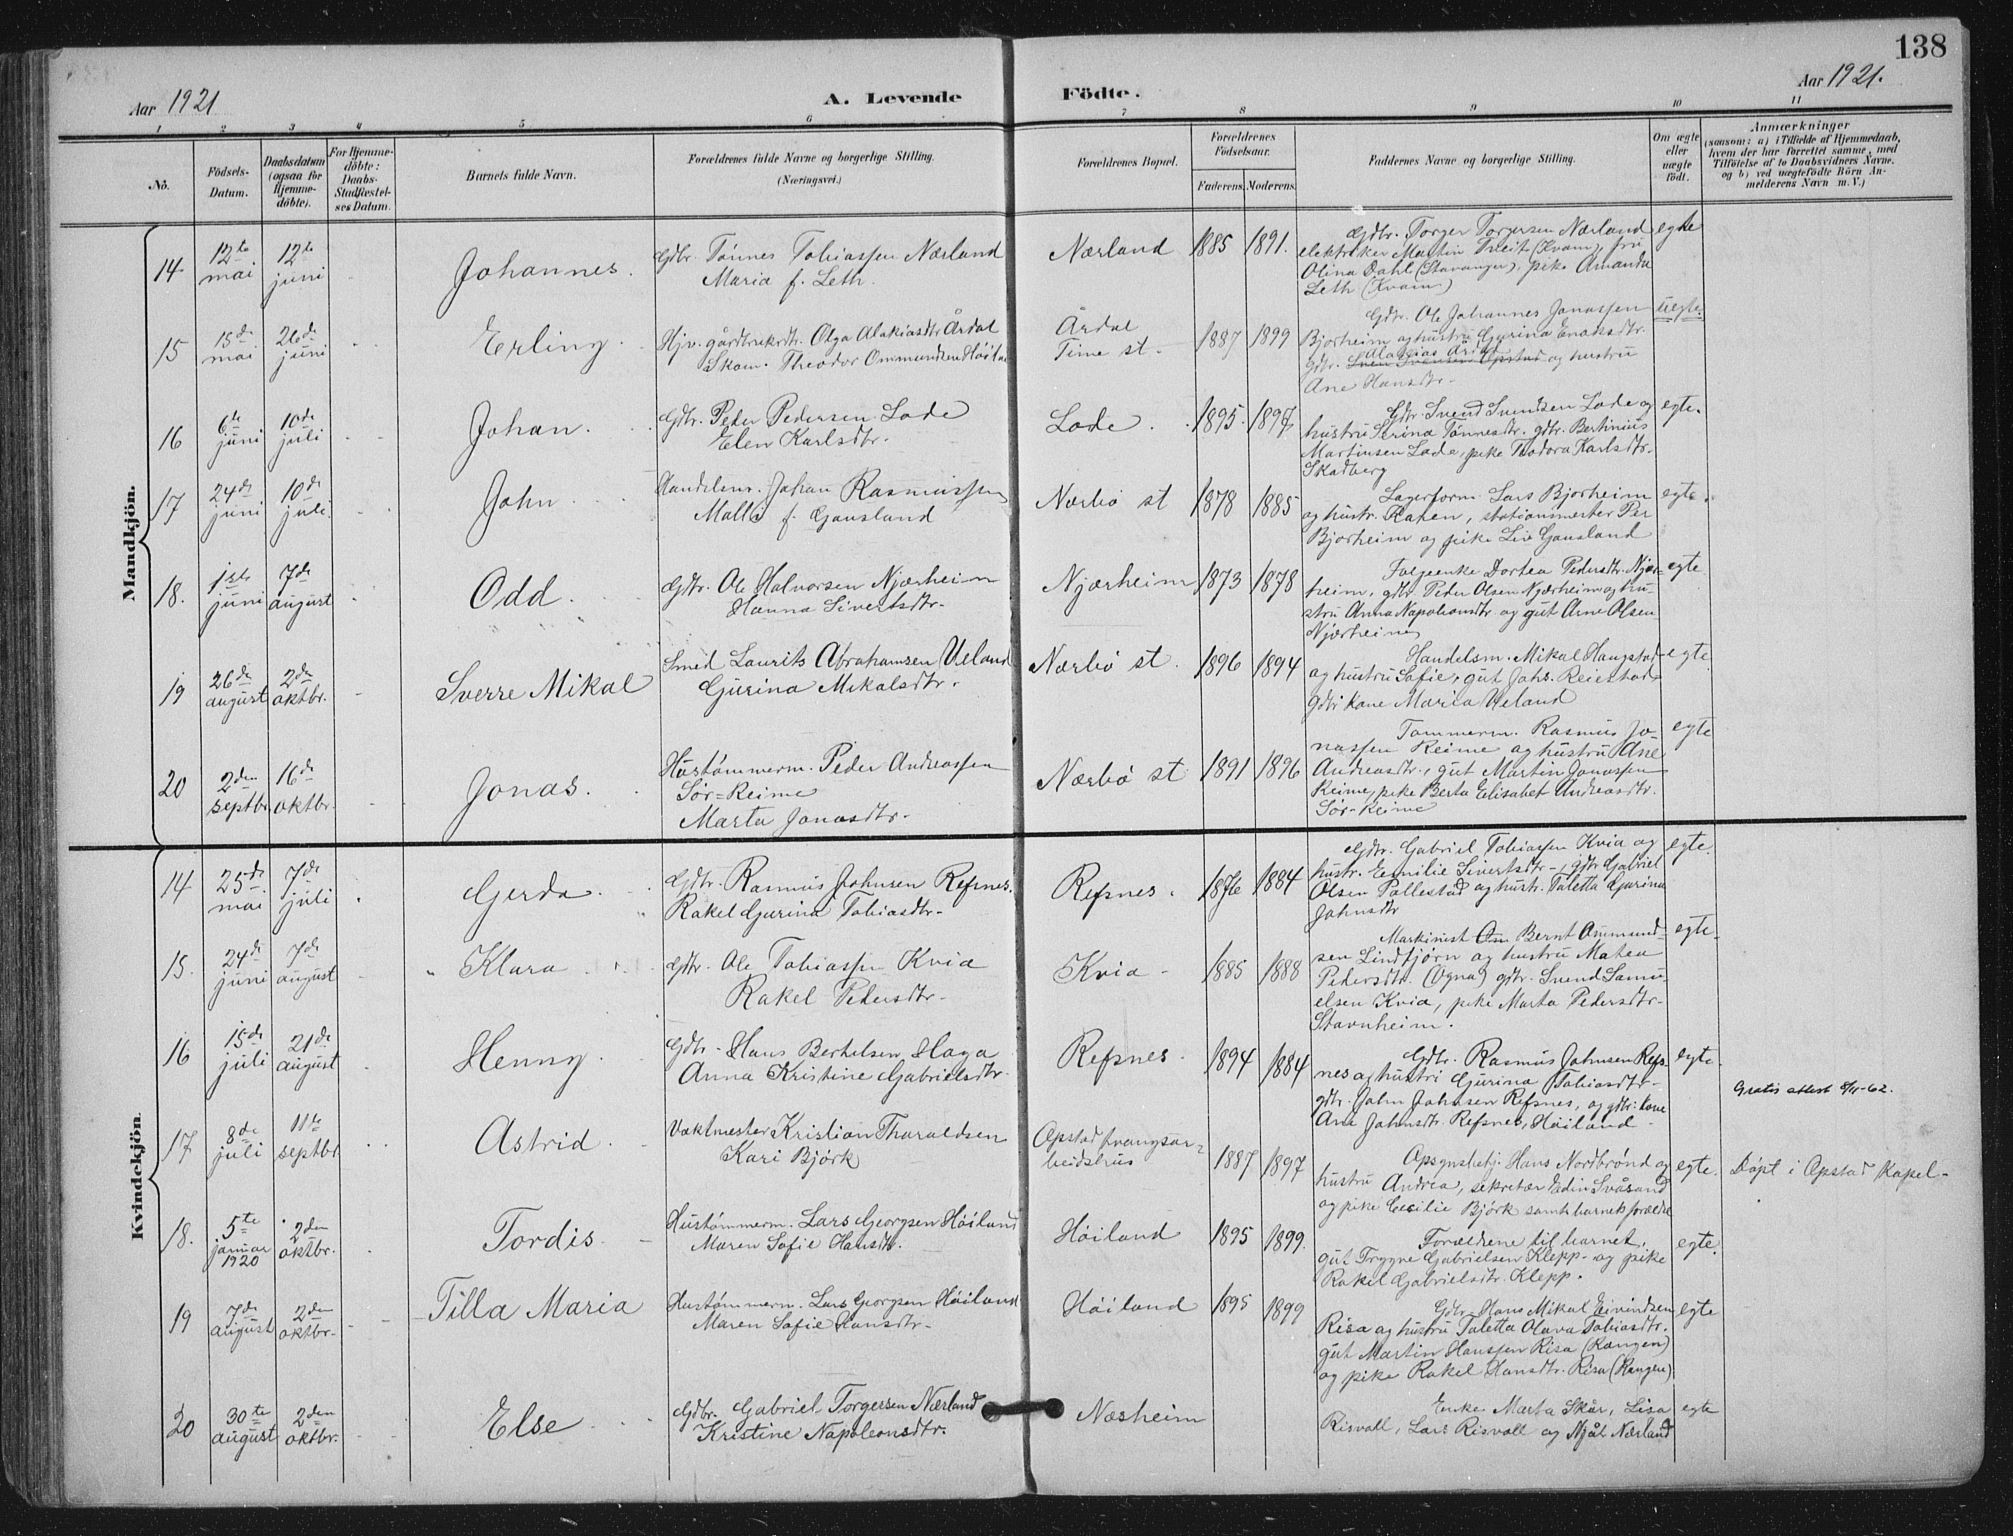 138
Aar 1921
A. Levende
Födte.
Aar 1921.
1 2 3 4 5 6 7 8 9 10 11
No.
Födsels-
Datum.
Daabsdatum
(ogsaa for
Hjemme-
döbte).
For Hjemme-
döbte:
Daabs-
Stadfæstel-
ses Datum.
Barnets fulde Navn.
Forældrenes fulde Navne og borgerlige Stilling.
(Næringsvei.)
Forældrenes Bopæl.
Forældrenes
Födselsaar.
Faderens. Moderens.
Faddernes Navne og borgerlige Stilling.
Om ægte
eller
uægte
födt.
Anmærkninger
(saasom: a) i Tilfælde af Hjemmedaab,
hvem der har forrettet samme, med
Tilföielse af to Daabsvidners Navne.
og b) ved uægtefödte Börn An-
melderens Navn m. V.)
Mandkjön.
14
12te
mai
12te
juni
Johannes.
Gdbr. Tønnes Tobiassen Nærland
Maria f. Leth.
Nærland
1885 1891.
Gdbr. Torger Torgersen Nærland
elektriker Martin Treit (Kvam), fru
Olina Dahl (Stavanger), pike Amanda
Leth (Kvam)
egte
15
15de
mai
26de
juni
Erling.
Hjv. gårdbrukrdtr. Olga Alakiasdtr Årdal
Skom. Theodor Ommundsen Höila
Årdal
Time st.
1887 1899
Gdbr. Ole Johannes Jonassen
Bjorheim og hustru Gjurina Enoksdtr.
Alakias Årda
gdbr. Sven Svensen Opstad og hustru
Ane Hansdtr.
uegte.
16
6te
juni
10de
juli
Johan.
Gdbr. Peder Pedersen Lode
Elen Karlsdtr.
Lode.
1895. 1897
Gdbr. Svend Svendsen Lode og
hustru Serina Tønnesdtr. gdbr. Bertinius
Martinsen Lode, pike Teodora Karlsdtr.
Skadberg
egte.
17
24de
juni
10de
juli.
John
Handelsm. Johan Rasmussen
Malli f. Gausland
Nærbö st
1878 1885
Lagerform. Lars Bjorheim
og hustr. Karen, stationsmester Per
Bjorheim og pike Liv Gausland
egte.
18.
1ste
juni
7de
august
Odd.
Gdbr. Ole Halvorsen Njærheim
Hanna Sivertsdtr.
Njærheim
1873 1878
Folgeenke Dortea Pedersdtr. Njær-
heim, gdbr. Peder Olsen Njærheim og hu-
stru Anna Napoleonsdtr og gut Arne Olsen
Njærheim
egte
19
26de
august
2de
oktbr.
Sverre Mikal
Smed Laurits Abrahamsen Ueland
Gjurina Mikalsdtr.
Nærbö st.
1896 1894
Handelsm. Mikal Haugstad
og hustru Sofie, gut Johs. Reiestad
gdbr kone Maria Ueland
egte.
20
2den
septbr.
16de
oktbr.
Jonas.
Hustømmerm. Peder Andreassen
Sör-Reime
Marta Jonasdtr.
Nærbö st
1891 1896
Tømmerm. Rasmus Jo-
nassen Reime og hustru Ane
Andreasdtr., gut Martin Jonassen
Reime, pike Berta Elisabet Andreasdtr.
Sör-Reime
egte
Kvindekjön.
14
25de
mai
7de
juli
Gerda.
Gdbr. Rasmus Johnsen Refsnes.
Rakel Gjurina Tobiasdtr.
Refsnes.
1876 1884
Gdbr. Gabriel Tobiassen Kvia og
hustr. Emilie Sivertsdtr., gdbr Gabriel
Olsen Pollestad og hustr. Taletta Gjurina
Johnsdtr
egte.
15.
24de
juni
7de
august
Klara
Gdbr. Ole Tobiassen Kvia
Rakel Pedersdtr.
Kvia
1885 1888
Maskinist Om Bernt Ommund-
sen Lindtjørn og hustru Matea
Pedersdtr. (Ogna) gdbr. Svend Samu-
elsen Kvia, pike Marta Pedersdtr.
Stavnheim.
egte.
16
15de
juli
21de
august
Henny.
Gdbr. Hans Bertelsen Haga
Anna Kristine Gabrielsdtr.
Refsnes.
1894 1884
Gdbr. Rasmus Johnsen Refs-
nes og hustri Gjurina Tobiasdtr.
gdbr. John Johnsen Refsnes, og gdbr: kone
Ane Johnsdtr. Refsnes, Höiland
egte.
Gratis attest 6/11-62.
17
8de
juli
11te
septbr.
Astrid
Vaktmester Kristian Tharaldsen
Kari Björk
Opstad tvangsar-
beidshus
1887 1897
Opsynsbetj. Hans Nordbrönd og
hustru Andrea, sekretær Edin Svåsand
og pike Cecilie Björk samt barnets forældre
egte.
Döpt i Opstad Kapel.
18.
5te
januar
1920
2den
oktbr.
Tordis
Hustømmerm. Lars Georgsen Höiland
Maren Sofie Hansdtr.
Höiland
1895 1899.
Forældrene til barnet,
gut Trygve Gabrielsen Klepp. og pike
Rakel Gabrielsdtr. Klepp.
egte.
19
7de
august
2den
oktbr.
Tilla Maria
Hustømmerm. Lars Georgsen Höiland
Maren Sofie Hansdtr.
Höiland
1895 1899
Gdbr. Hans Mikal Eivindsen
Risa og hustru Taletta Olava Tobiasdtr.
gut Martin Hanssen Risa (Kangen)
og pike Rakel Hansdtr. Risa (Kangen)
egte
20
30te
august
2den
oktbr.
Else
Gdbr. Gabriel Torgersen Nærland
Kristine Napoleonsdtr.
Næsheim
Enke Marta Skår, Lisa
Risvoll, Lars Risvoll og Njål Nærland
egte